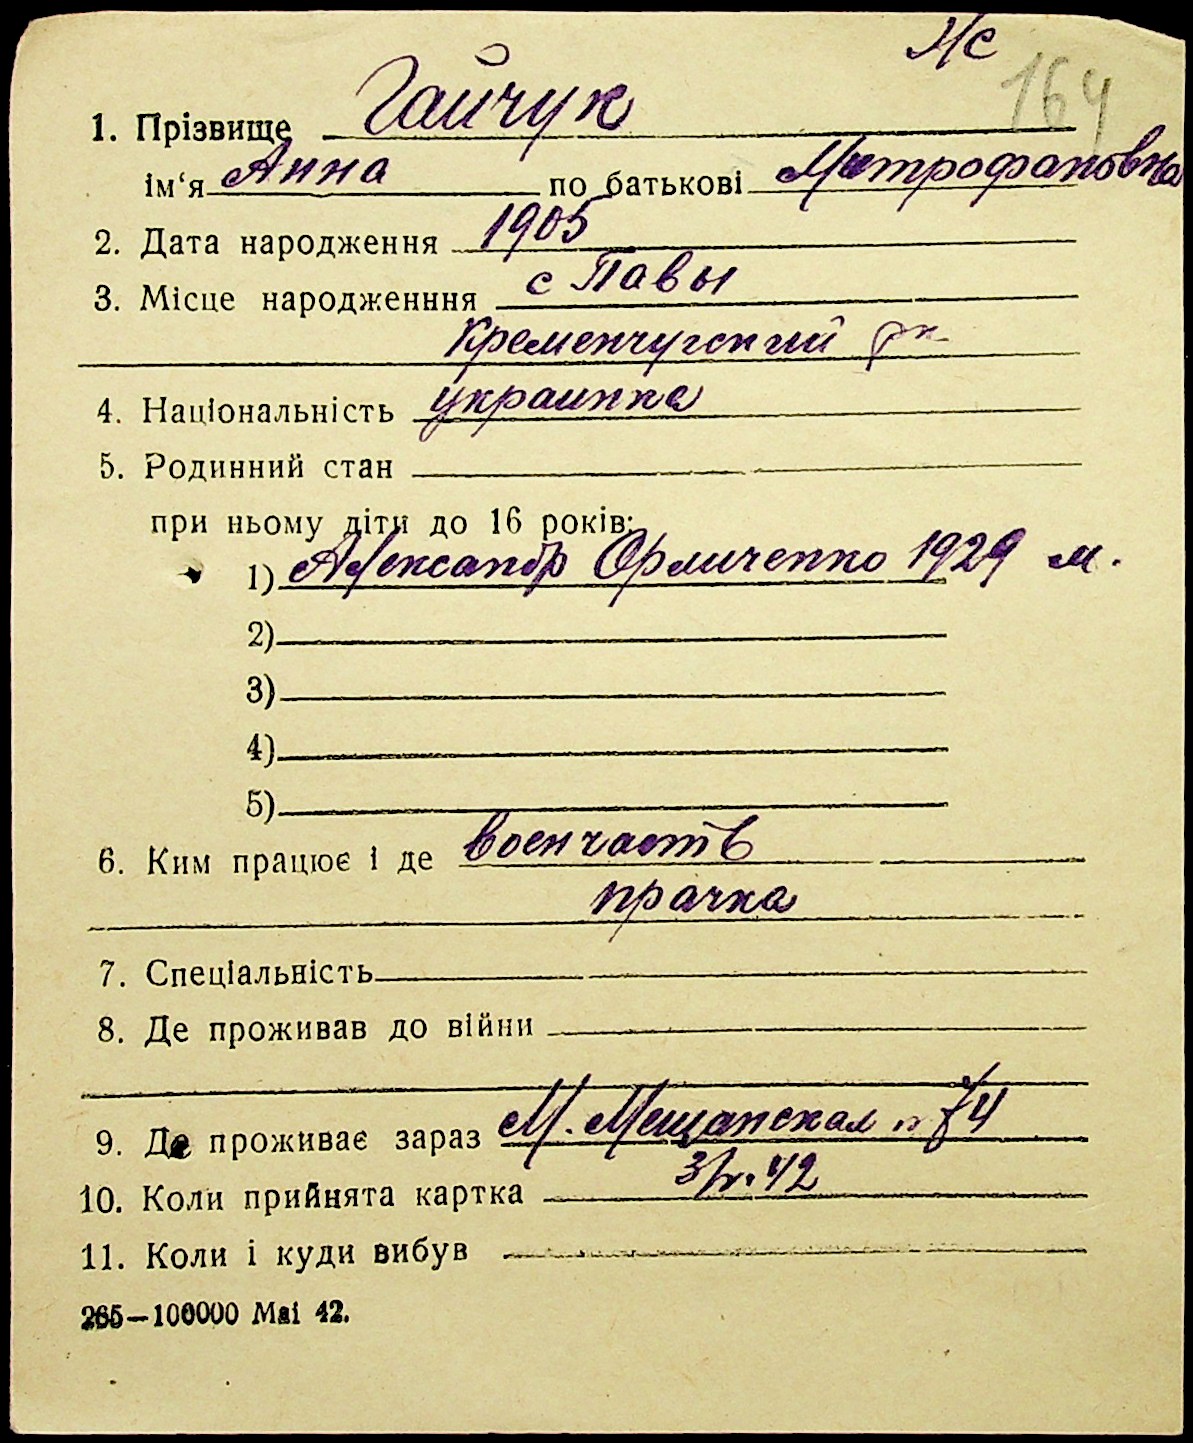 Ж/с
164
1. Прізвище Гайчук
ім‘я Анна по батькові Митрофановна
2. Дата народження 1905
3. Місце народженння с Павы
Кременчугский рн
4. Національність украинка
5. Родинний стан
при ньому діти до 16 років:
1) Александр Орличенко 1929 м.
2)
3)
4)
5)
6. Ким працює і де военчасть
прачка
7. Спеціальність
8. Де проживав до війни
9. Де проживає зараз М. Мещанская 74
10. Коли прийнята картка 42
11. Коли і куди вибув
265—100000 Mai 42.